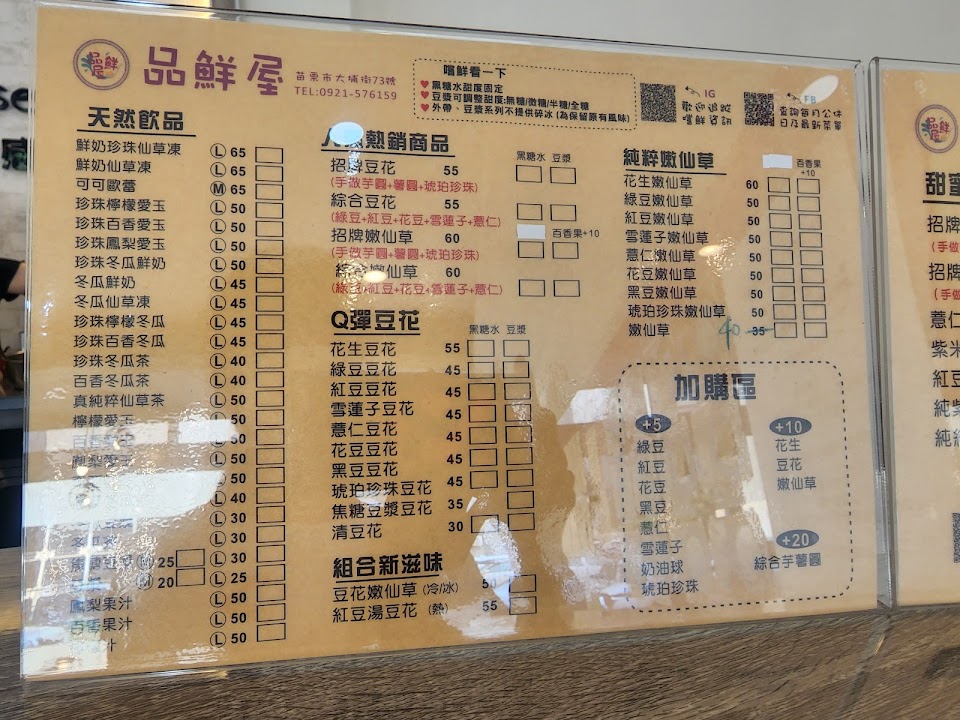 品鮮屋
苗栗市大埔街73號
TEL:0921-576159
嚐鮮看一下
♥黑糖水甜度固定
♥豆漿可調整甜度:無糖/微糖/半糖/全糖
♥外帶、豆漿系列不提供碎冰(為保留原有風味)
IG
歡迎追蹤
嚐鮮資訊
FB
查詢每月公休
日及最新菜單
天然飲品
鮮奶珍珠仙草凍 Ⓛ 65
鮮奶仙草凍 Ⓛ 65
可可歐蕾 Ⓜ 65
珍珠檸檬愛玉 Ⓛ 50
珍珠百香愛玉 Ⓛ 50
珍珠鳳梨愛玉 Ⓛ 50
珍珠冬瓜鮮奶 Ⓛ 50
冬瓜鮮奶 Ⓛ 45
冬瓜仙草凍 Ⓛ 45
珍珠檸檬冬瓜 Ⓛ 45
珍珠百香冬瓜 Ⓛ 45
珍珠冬瓜茶 Ⓛ 40
百香冬瓜茶 Ⓛ 40
真純粹仙草茶 Ⓛ 40
檸檬愛玉 Ⓛ 50
百香愛玉 Ⓛ 50
鳳梨愛玉 Ⓛ 50
Ⓛ 40
Ⓛ 30
Ⓛ 30
Ⓜ 25 Ⓛ 30
Ⓜ 20 Ⓛ 25
鳳梨果汁 Ⓛ 50
百香果汁 Ⓛ 50
汁 Ⓛ 50
熱銷商品
黑糖水 豆漿
招牌豆花 55
(手做芋圓+薯圓+琥珀珍珠)
綜合豆花 55
(綠豆+紅豆+花豆+雪蓮子+薏仁)
招牌嫩仙草 60 百香果+10
(手做芋圓+薯圓+琥珀珍珠)
綜合嫩仙草 60
(綠豆+紅豆+花豆+雪蓮子+薏仁)
Q彈豆花
黑糖水 豆漿
花生豆花 55
綠豆豆花 45
紅豆豆花 45
雪蓮子豆花 45
薏仁豆花 45
花豆豆花 45
黑豆豆花 45
琥珀珍珠豆花 45
焦糖豆漿豆花 35
清豆花 30
組合新滋味
豆花嫩仙草 (冷/冰) 50
紅豆湯豆花 (熱) 55
純粹嫩仙草
百香果
+10
花生嫩仙草 60
綠豆嫩仙草 50
紅豆嫩仙草 50
雪蓮子嫩仙草 50
薏仁嫩仙草 50
花豆嫩仙草 50
黑豆嫩仙草 50
琥珀珍珠嫩仙草 50
嫩仙草 40 35
加購區
+5
綠豆
紅豆
花豆
黑豆
薏仁
雪蓮子
奶油球
琥珀珍珠
+10
花生
豆花
嫩仙草
+20
綜合芋薯圓
甜蜜
招牌
(手做
招牌
(手做
薏仁
紫米
紅豆
純紫
純